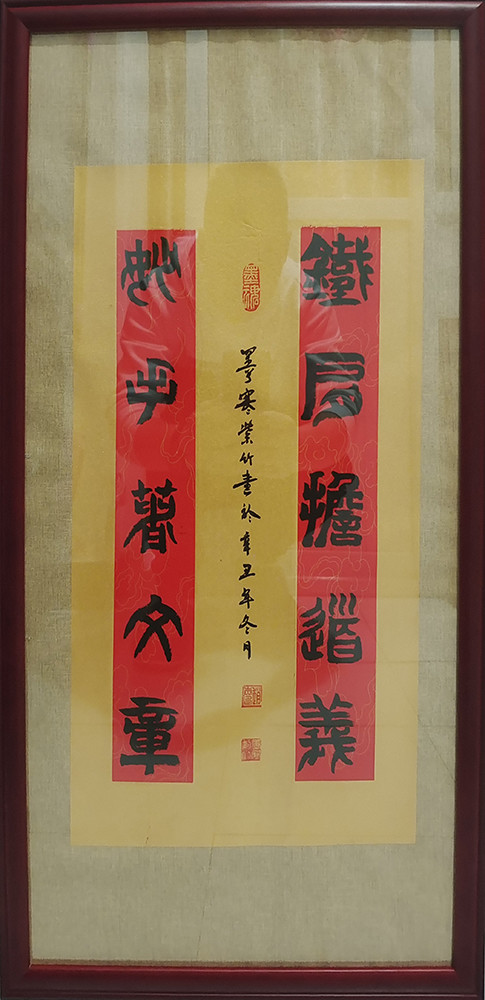 鐵肩擔道義
寒紫竹書於辛丑年冬月
妙手著文章